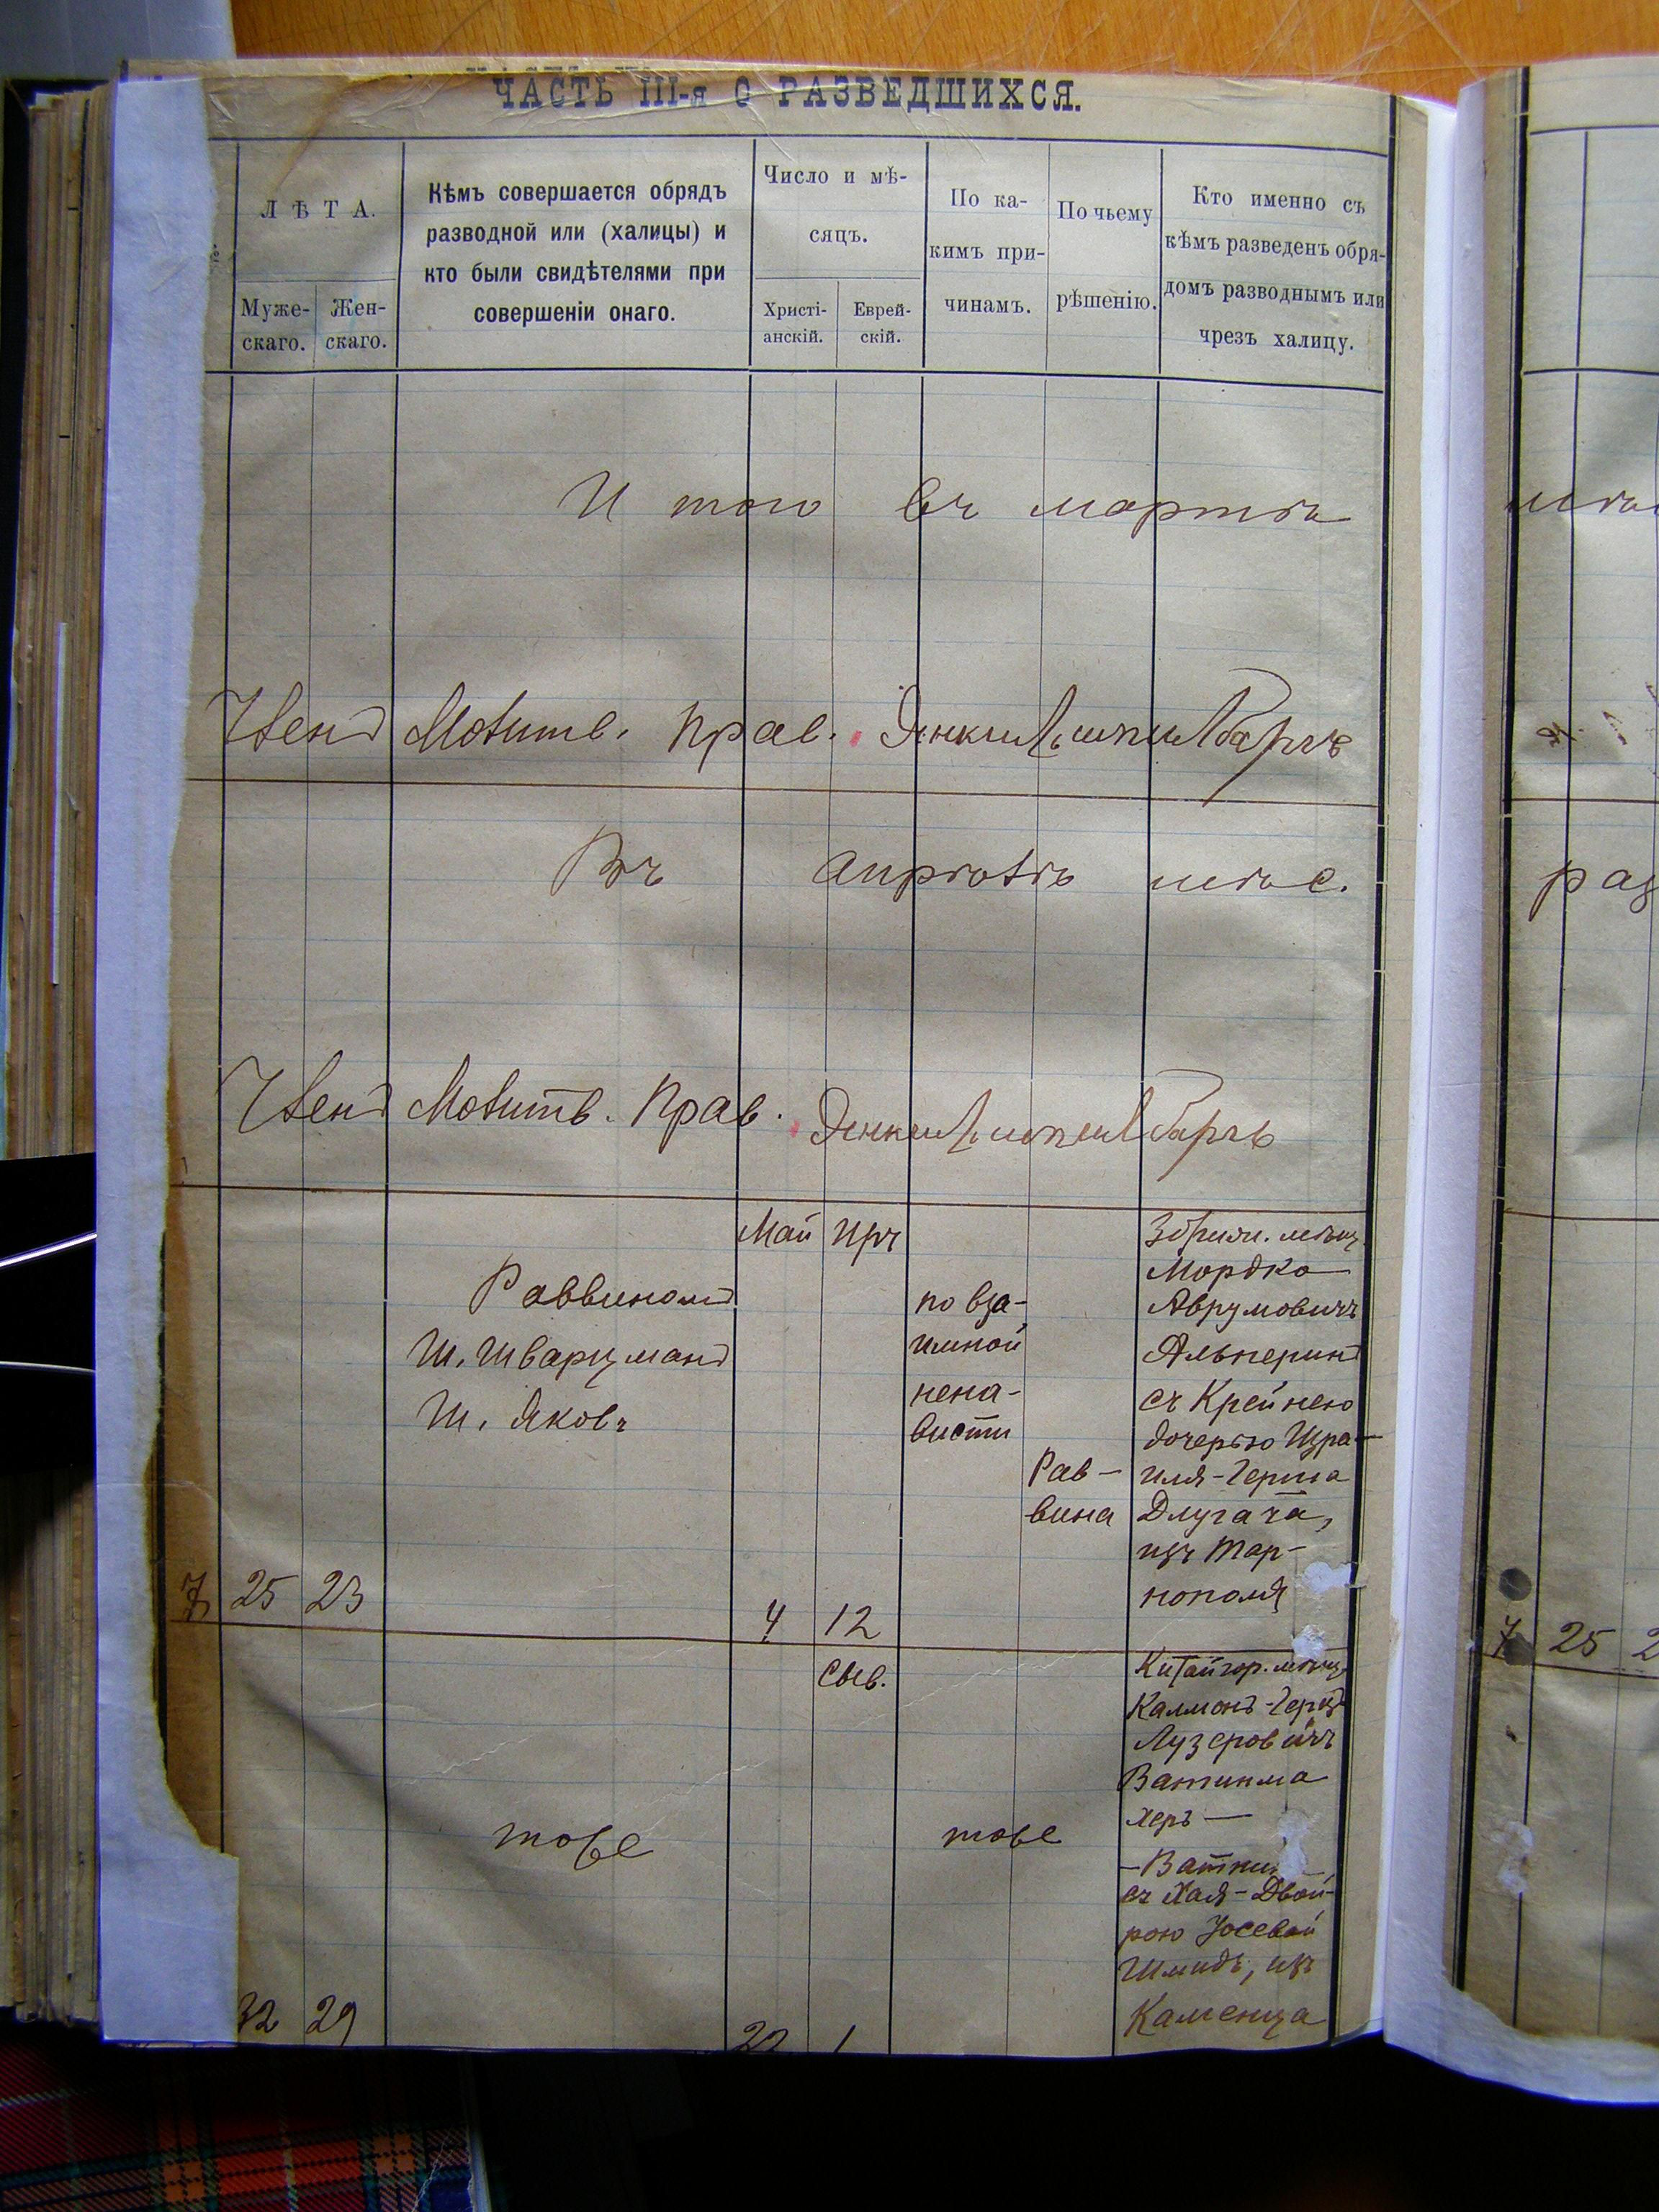 ЧАСТЬ III-я О РАЗВЕДШИХСЯ.
ЛѢТА.
Муже-
скаго.
Жен-
скаго.
Кѣмъ совершается обрядъ
разводной или (халицы) и
кто были свидѣтелями при
совершеніи онаго.
Число и мѣ-
сяцъ.
Христі-
анскій.
Еврей-
скій.
По ка-
кимъ при-
чинамъ.
По чьему
рѣшенію.
Кто именно съ
кѣмъ разведенъ обря-
домъ разводнымъ или
чрезъ халицу.
И того въ мартѣ
Членъ Молитв. Прав.
Въ апрѣлѣ мѣс.
раз
Членъ Молитв. Прав.
7 25 23
Раввиномъ
Ш. Шварцманъ
Ш. Яковъ
Май
4
Иръ
12
по вза-
имной
нена-
висти
Рав-
вина
мѣщ.
Мордко
Аврумовичъ
Альперинъ
съ Крейнею
дочерью Изра-
иля-Герша
Длугача,
изъ Тар-
нополя
7 25 2
32 29
тоже
22
Сив.
1
тоже
Китайгор. мѣщ.
Калмонъ-Герц
Лузеровичъ
Ватинма
херъ —
съ Хая-Двой-
рою Іосевой
Шмидъ, изъ
Каменца